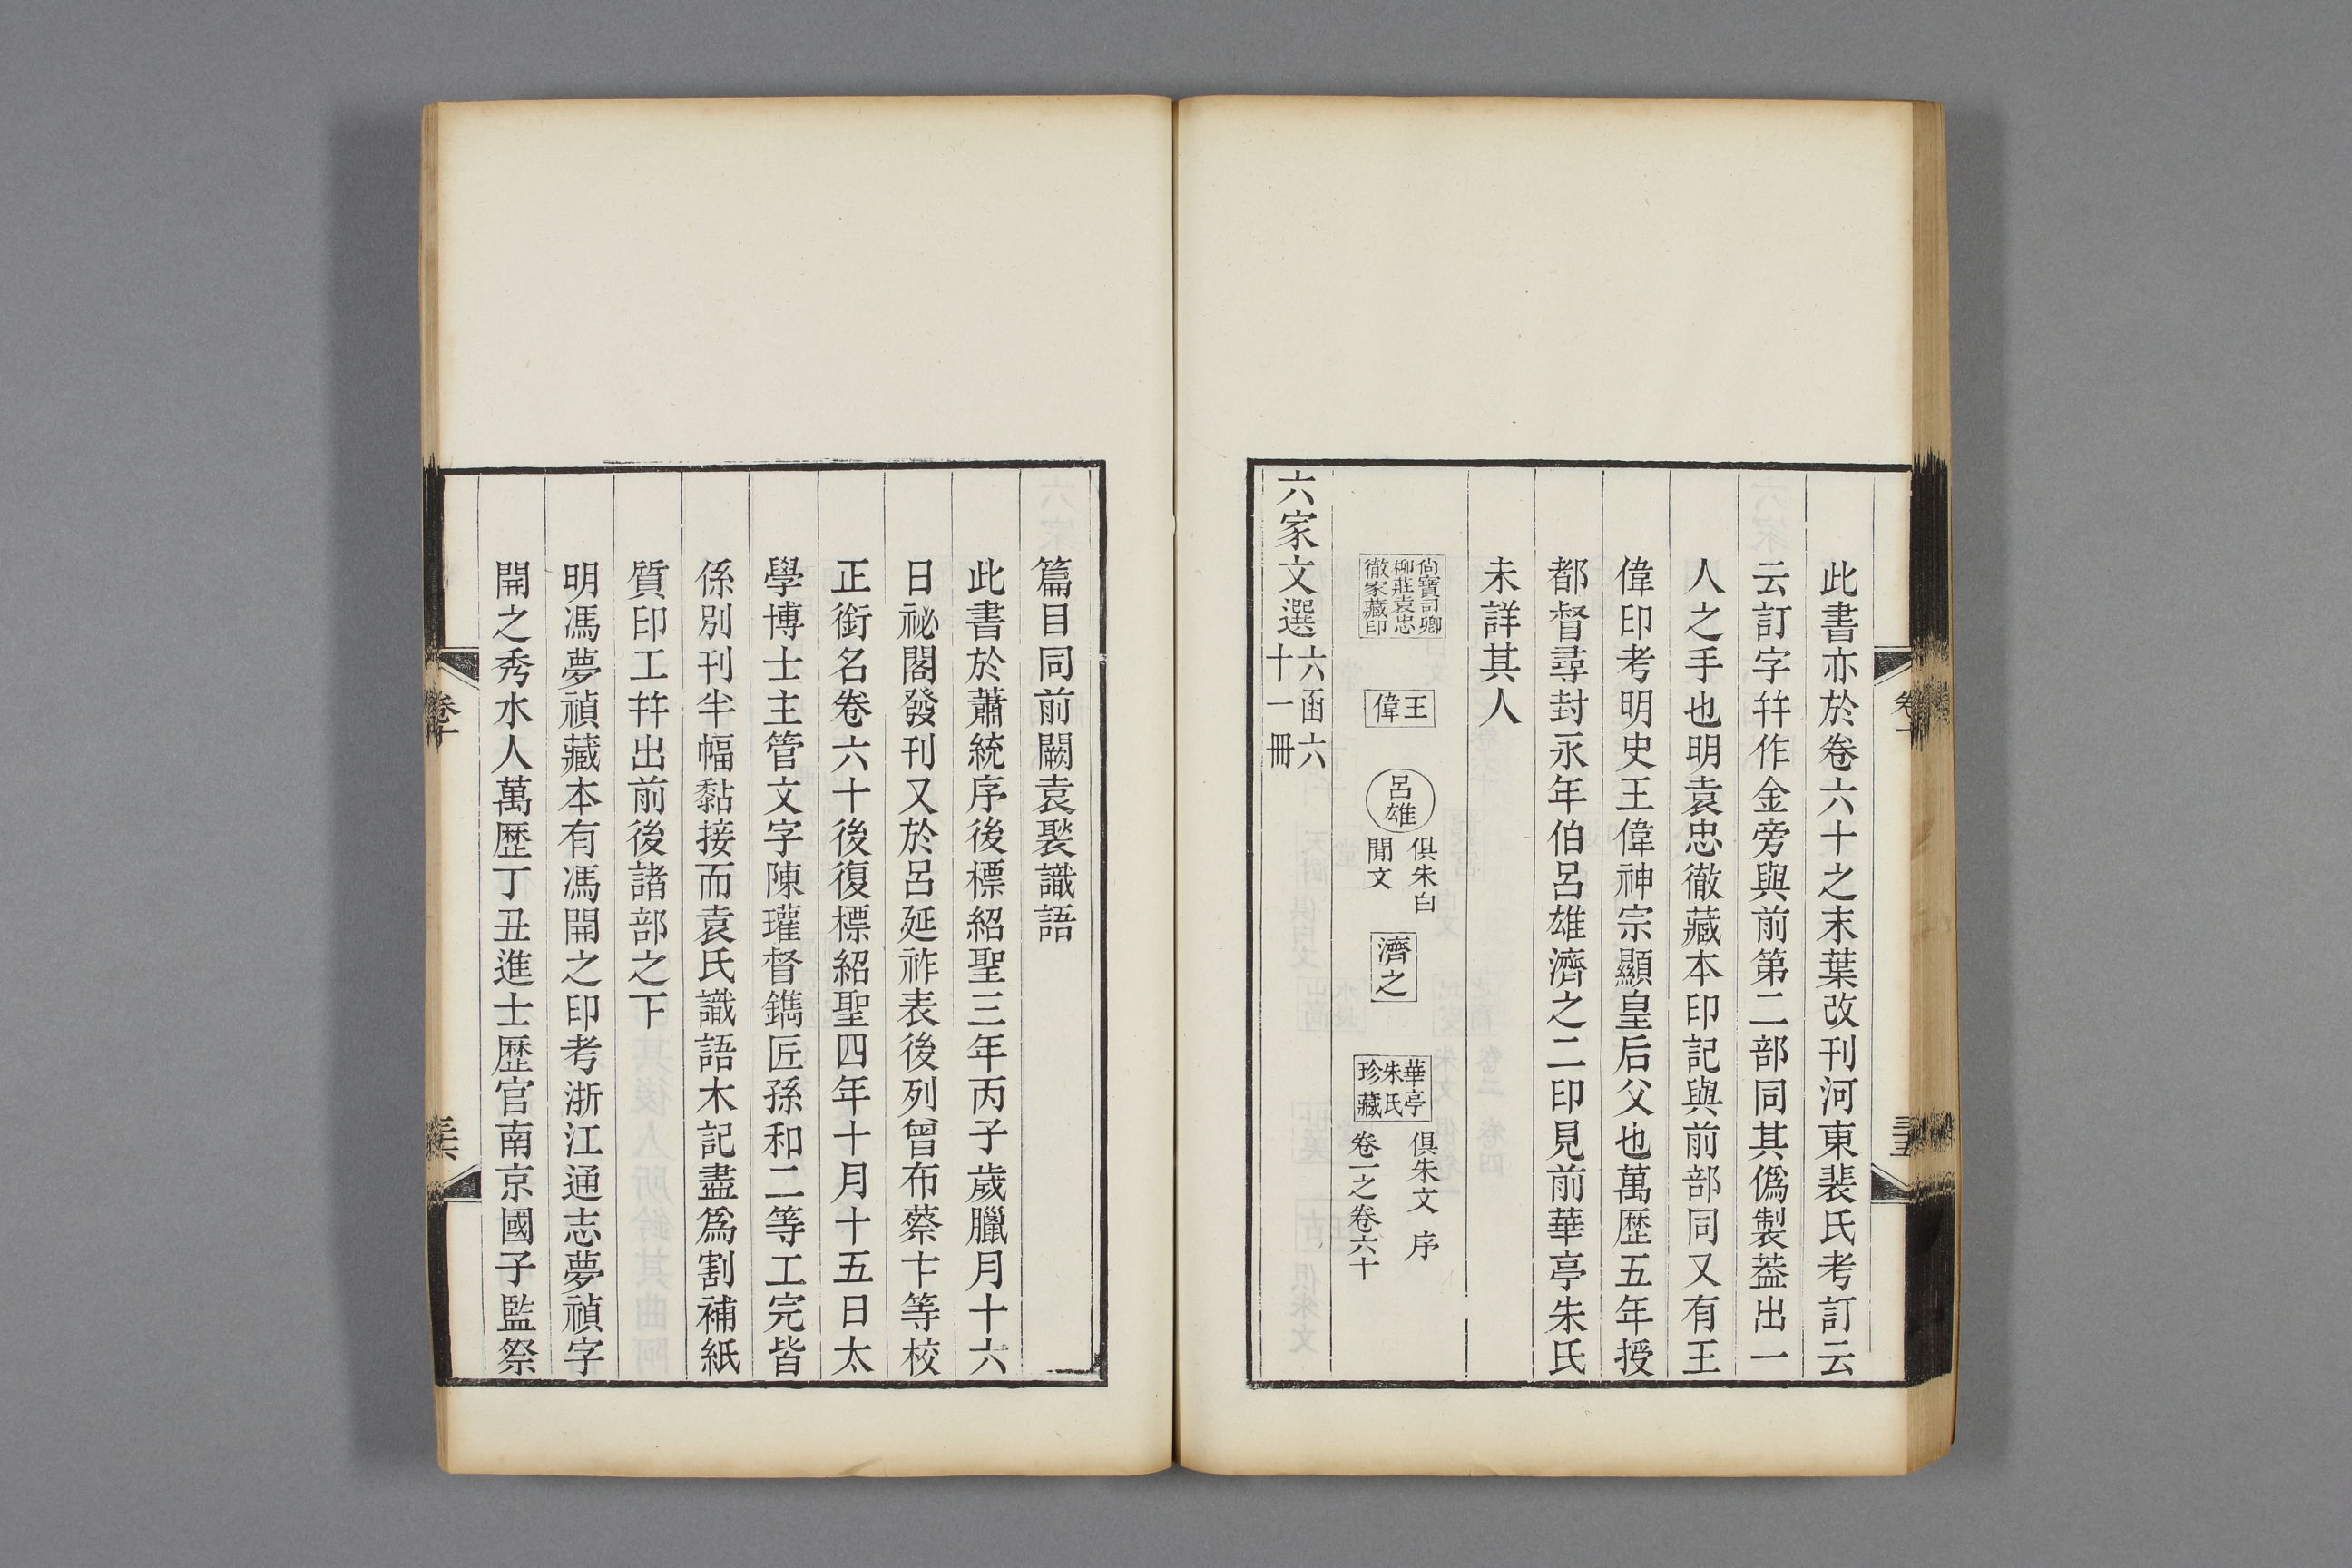 此書亦於卷六十之末葉改刊河東裴氏考訂云
云訂字幷作金旁與前第二部同其僞製葢出一
人之手也明袁忠徹藏本印記與前部同又有王
偉印考明史王偉神宗顯皇后父也萬歷五年授
都督尋封永年伯呂雄濟之二印見前華亭朱氏
未詳其人
尙寶司卿
柳莊袁忠
徹家藏印
王偉
呂雄
俱朱白
閒文
濟之
華亭
朱氏
珍藏
俱朱文 序
卷一之卷六十
六家文選
六函六
十一冊
篇目同前闕袁褧識語
此書於蕭統序後標紹聖三年丙子歲臘月十六
日祕閣發刊又於呂延祚表後列曾布蔡卞等校
正銜名卷六十後復標紹聖四年十月十五日太
學博士主管文字陳瓘督鐫匠孫和二等工完皆
係別刊半幅黏接而袁氏識語木記盡爲割補紙
質印工幷出前後諸部之下
明馮夢禎藏本有馮開之印考浙江通志夢禎字
開之秀水人萬歷丁丑進士歷官南京國子監祭